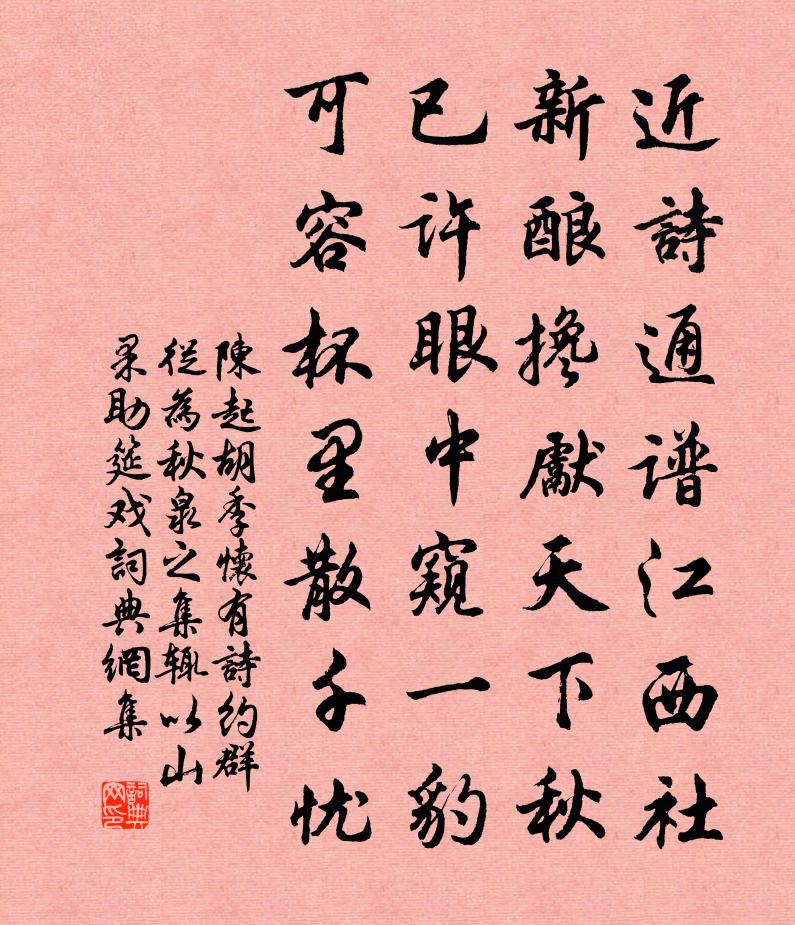 近詩通谱江西社
新酿搀獻天下秋
已许眼中窺一豹
可容杯里散千忧
陳起胡季懷有詩約群
從為秋泉之集辄以山
果助筵戏詞典網集
詞典网印